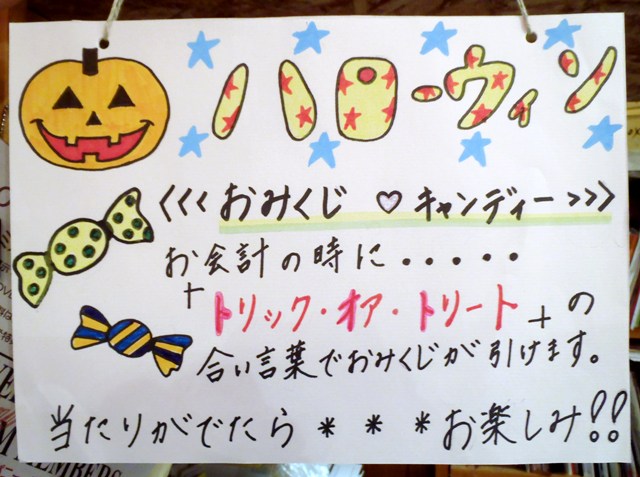 ハローウィン
<<< おみくじ ♡ キャンディー >>>
お会計の時に・・・・・
+トリック・オア・トリート+の
合い言葉でおみくじが引けます。
当たりがでたら * * * お楽しみ!!